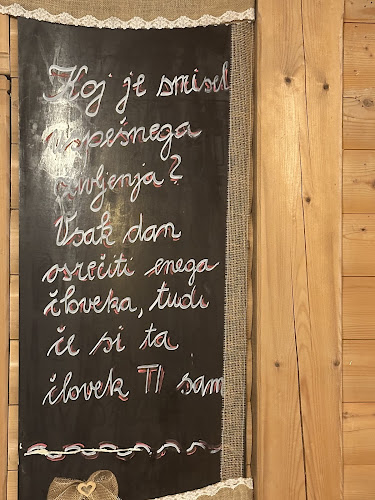 Kaj je smisel
uspešnega
življenja?
Vsak dan
osrečiti enega
človeka, tudi
če si ta
človek TI sam